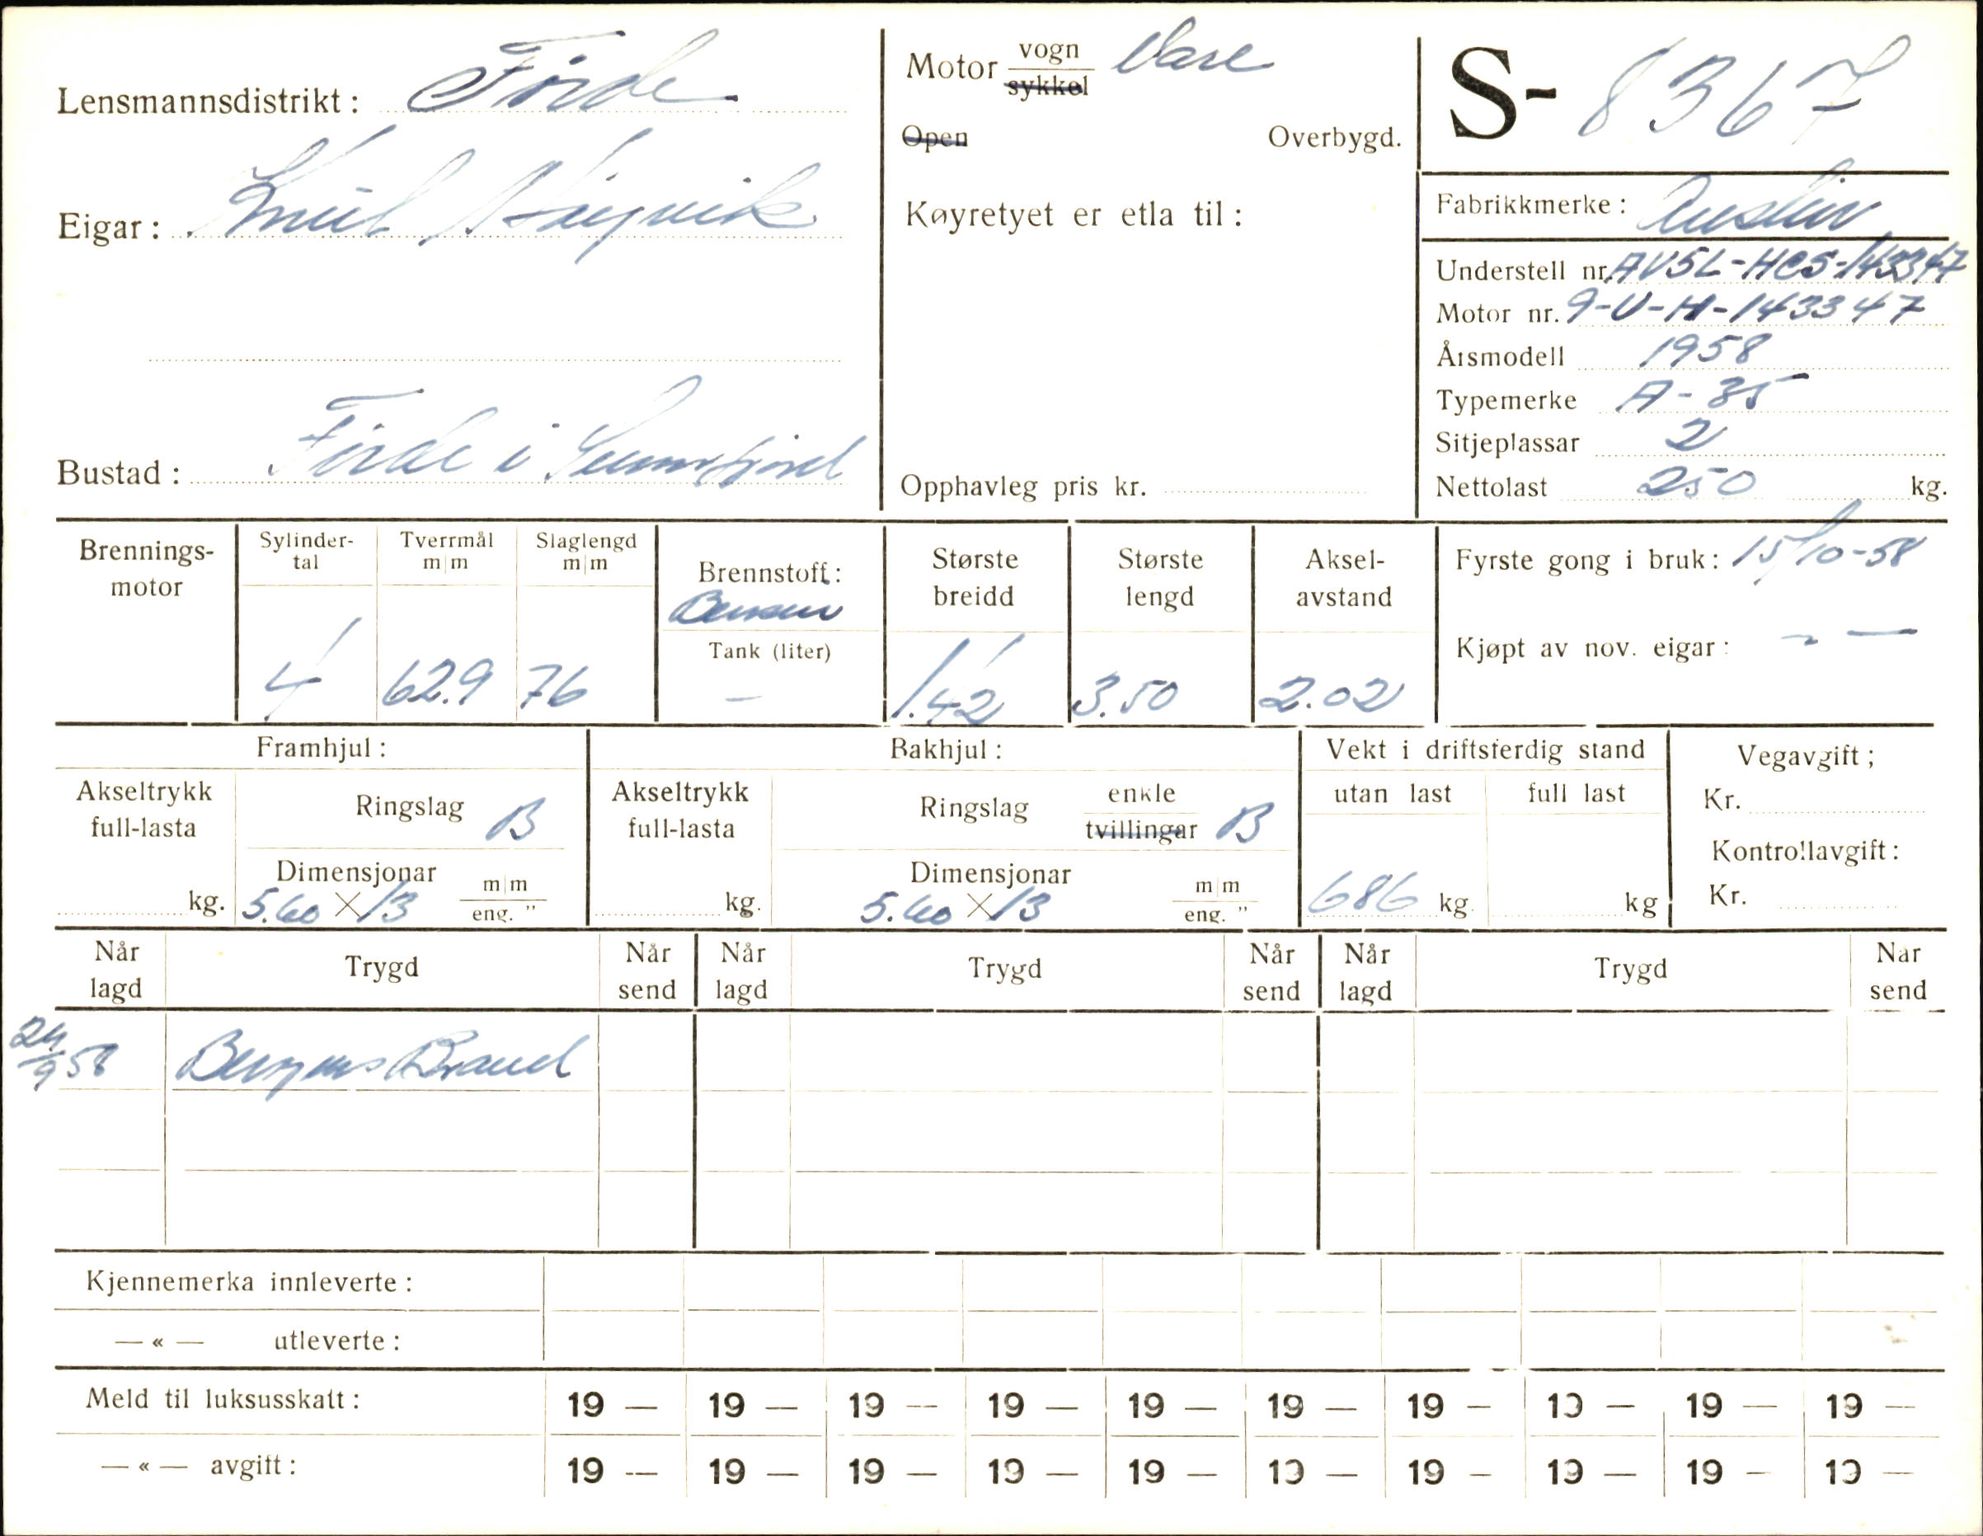 Lensmannsdistrikt: Förde
Eigar: Emil
Bustad: Förde i Sunnfjord
Motor vogn Vare
sykkel
Open Overbygd.
Køyretyet er etla til:
Opphavleg pris kr.
S- 8367
Fabrikkmerke: Austin
Understell nr. AV5L-HCS-143347
Motor nr. 9-U-H-143347
Årsmodell 1958
Typemerke A-35
Sitjeplassar 2
Nettolast 250 kg.
Brennings-
motor
Sylinder-
tal
4
Tverrmål
m|m
62.9
Slaglengd
m|m
76
Brennstoff:
Bensin
Tank (liter)
—
Største
breidd
1.42
Største
lengd
3.50
Aksel-
avstand
2.02
Fyrste gong i bruk: 15/10-58
Kjøpt av nov. eigar: - —
Framhjul:
Akseltrykk
full-lasta
kg.
Ringslag B
Dimensjonar
5.60 X 13 m|m
eng. "
Bakhjul:
Akseltrykk
full-lasta
kg.
Ringslag enkle
tvillingar B
Dimensjonar
5.60 X 13 m|m
eng. "
Vekt i driftsferdig stand
utan last full last
686 kg kg
Vegavgift;
Kr.
Kontrollavgift:
Kr.
Når
lagd Trygd Når
send Når
lagd Trygd Når
send Når
lagd Trygd Når
send
24/9 58 Bergens Brand
Kjennemerka innleverte:
— « — utleverte:
Meld til luksusskatt: 19 — 19 — 19 — 19 — 19 — 19 — 19 — 19 — 19 — 19 —
— « — avgift: 19 — 19 — 19 — 19 — 19 — 19 — 19 — 19 — 19 — 19 —